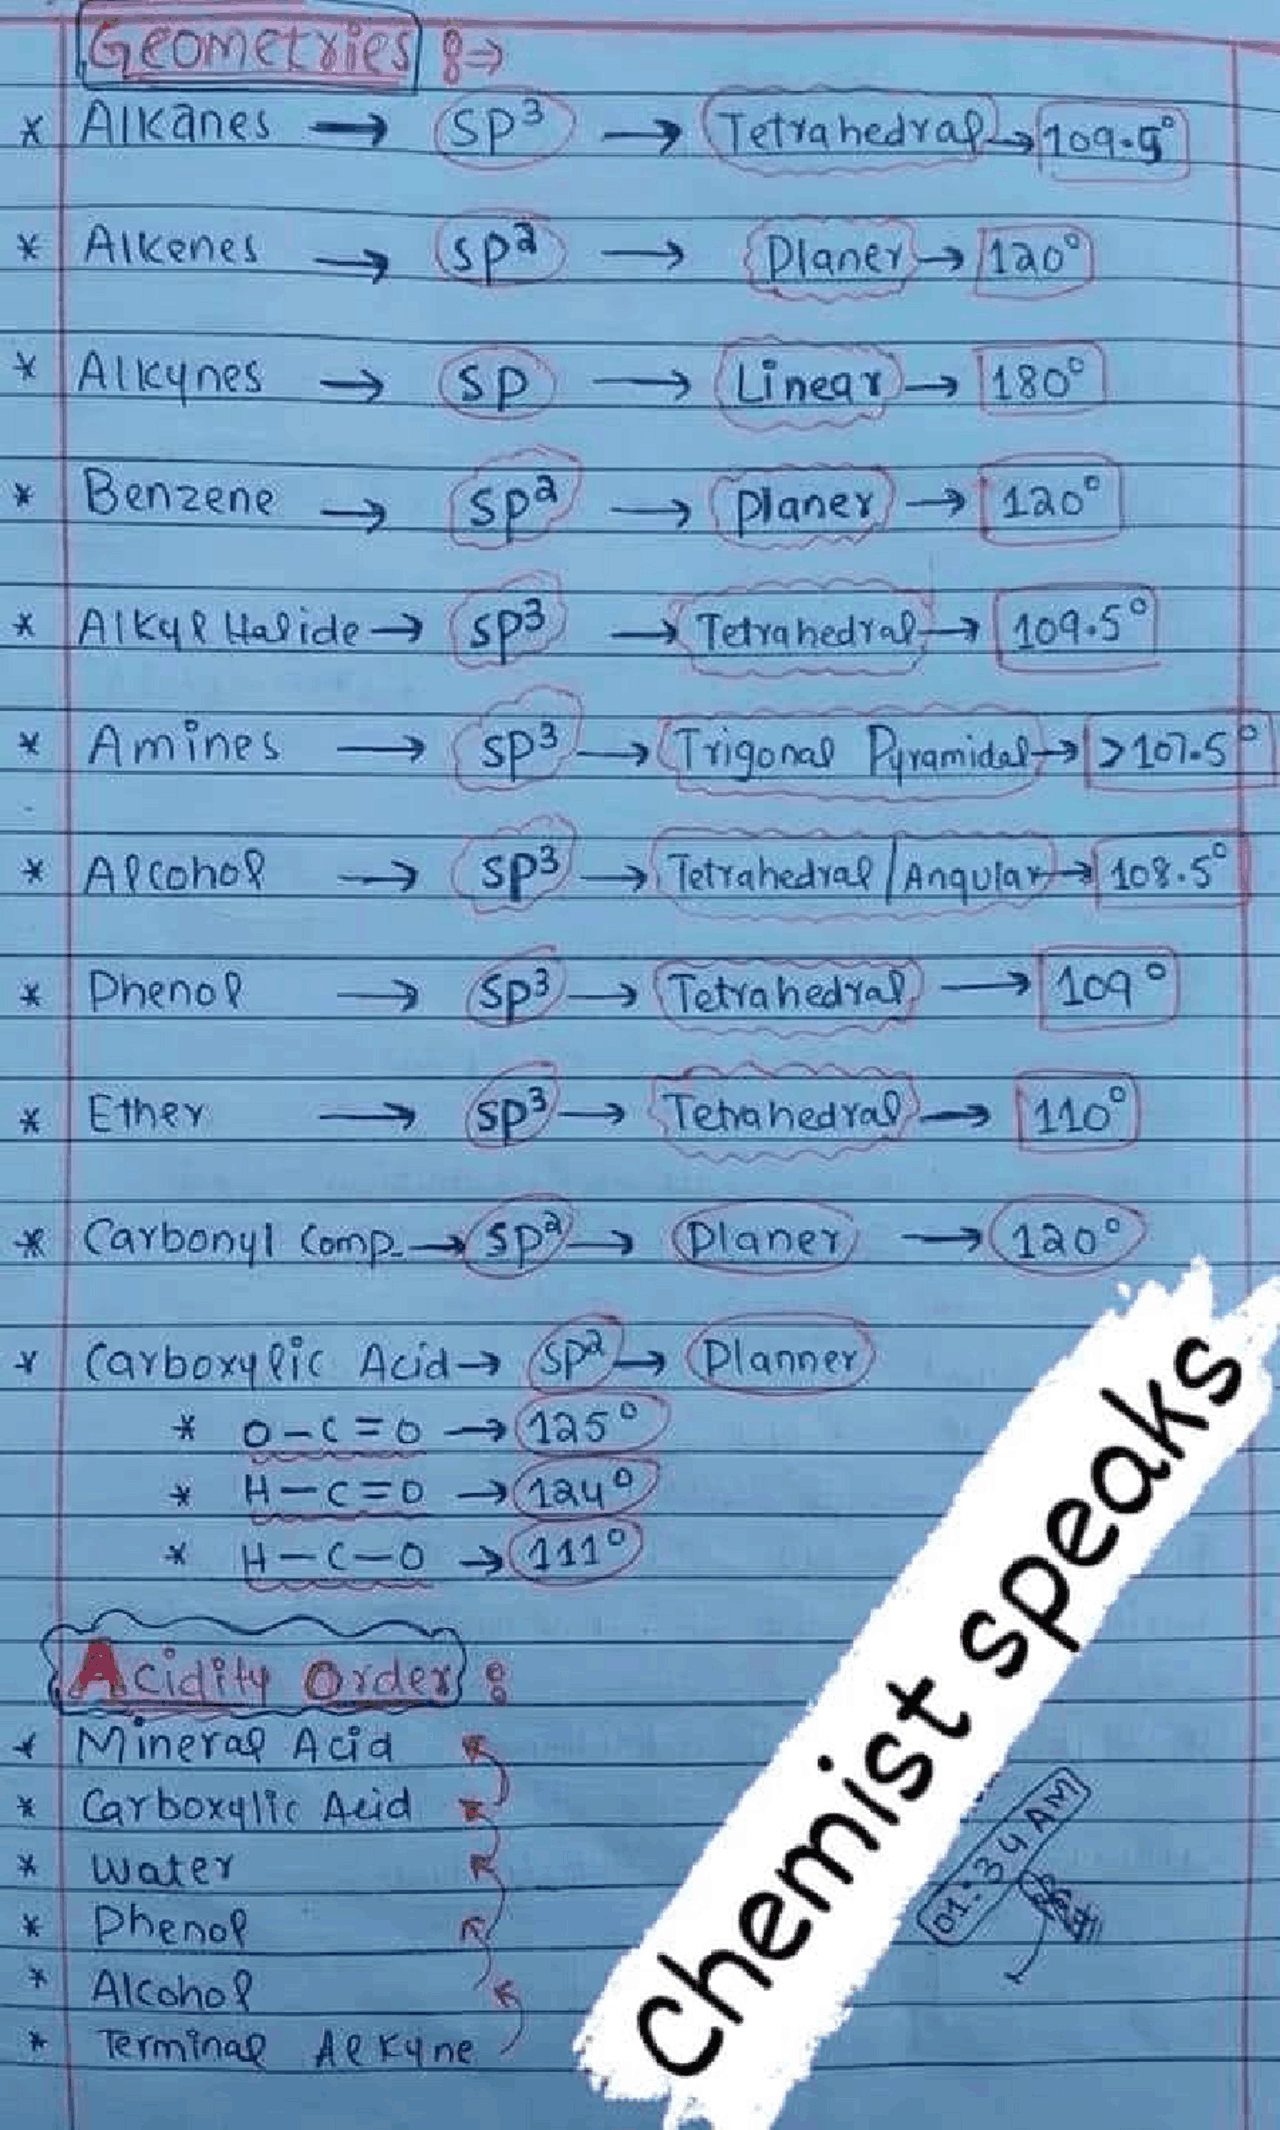 Geometries :→
* Alkanes → sp³ → Tetrahedral → 109.5°
* Alkenes → sp² → Planer → 120°
* Alkynes → sp → Linear → 180°
* Benzene → sp² → Planer → 120°
* Alkyl Halide → sp³ → Tetrahedral → 109.5°
* Amines → sp³ → Trigonal Pyramidal → >107.5°
* Alcohol → sp³ → Tetrahedral / Angular → 108.5°
* Phenol → sp³ → Tetrahedral → 109°
* Ether → sp³ → Tetrahedral → 110°
* Carbonyl Comp. → sp² → Planer → 120°
* Carboxylic Acid → sp² → Planner
* O-C=O → 125°
* H-C=O → 124°
* H-C-O → 111°
Acidity Order :
* Mineral Acid
* Carboxylic Acid
* Water
* Phenol
* Alcohol
* Terminal Alkyne
01:34 AM
Chemist speaks